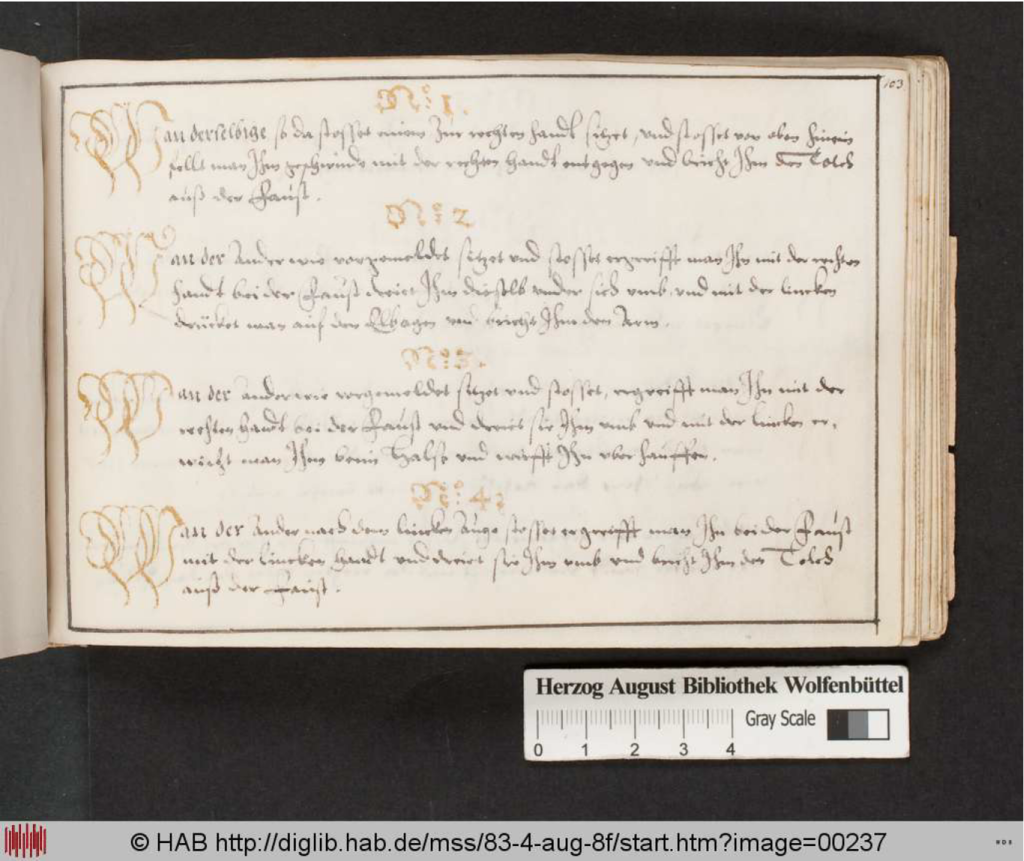 103
No: 1.
Wan derselbige so da stosset einem Zur rechten handt sitzet, und stosset von oben hinein
fellt man Ihm geschwinde mit der rechten handt entgegen und bricht Ihm den Tolch
auß der Faust.
No: 2
Wan der Ander wie vorgemeldet sitzet und stosset ergreifft man Ihn mit der rechten
handt bei der Faust dreiet Ihm dieselb under sich umb, und mit der lincken
drücket man auf den Elbogen und bricht Ihm den Arm.
No: 3.
Wan der ander wie vorgemeldet sitzet und stosset, ergreifft man Ihn mit der
rechten handt bei der Faust und dreiet sie Ihm umb und mit der lincken er,
wischt man Ihm beim Halse und wirfft Ihn uber hauffen.
No: 4:
Wan der Ander nach dem lincken Auge stosset ergreifft man Ihn bei der Faust
mit der lincken handt und dreiet sie Ihm umb und bricht Ihm den Tolch
auß der Faust.
Herzog August Bibliothek Wolfenbüttel
Gray Scale
0 1 2 3 4
© HAB http://diglib.hab.de/mss/83-4-aug-8f/start.htm?image=00237